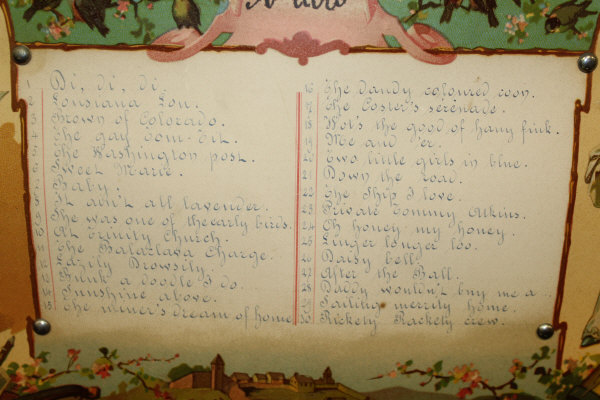 1 Di, di, di.
2 Louisiana Lou.
3 Brown of Colorado.
4 The gay Tom-Tit.
5 The Washington post.
6 Sweet Marie.
7 Baby.
8 It ain't all lavender.
9 She was one of the early birds.
10 At Trinity Church.
11 The Balaclava Charge.
12 Lazily Drowsily.
13 a doodle I do.
14 Sunshine above.
15 The miner's dream of home
16 The dandy coloured coon.
17 The Coster's serenade.
18 Wot's the good of hany fink.
19 Me and 'er.
20 Two little girls in blue.
21 Down the road.
22 The Ship I love.
23 Private Tommy Atkins.
24 Oh honey my honey.
25 Linger longer loo.
26 Daisy bell
27 After the Ball.
28 Daddy wouldn't buy me a ..
29 Sailing merrily home.
30 Rickety Rackety crew.